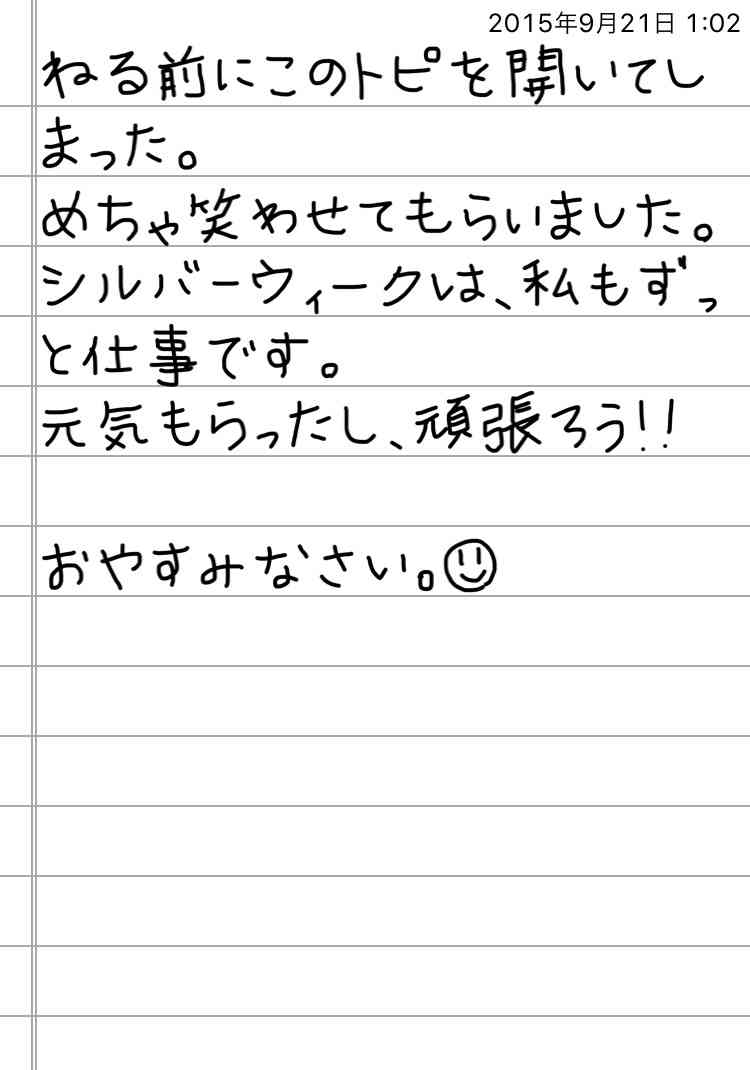 2015年9月21日 1:02
ねる前にこのトピを開いてし
まった。
めちゃ笑わせてもらいました。
シルバーウィークは、私もずっ
と仕事です。
元気もらったし、頑張ろう!!
おやすみなさい。☺